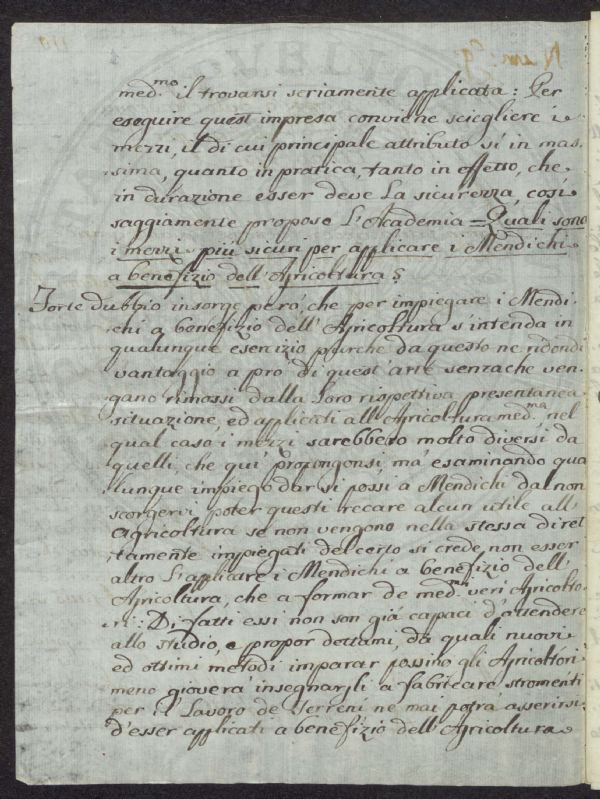 med.mo il trovarsi seriamente applicata: Per
eseguire quest' impresa conviene sciegliere i
mezzi, il di cui principale attributo sì in mas-
sima, quanto in pratica, tanto in effetto, che
in durazione esser deve la sicurezza, così
saggiamente propose L'Academia = Quali sono
i mezzi più sicuri per applicare i Mendichi
a benefizio dell' Agricoltura §
Forte dubbio insorge però, che per impiegare i Mendi-
chi a benefizio dell' Agricoltura s'intenda in
qualunque esercizio purche da questo ne ridondi
vantaggio a prò di quest' arte senzache ven-
gano rimossi dalla loro rispettiva presentanea
situazione, ed applicati all' Agricoltura med.ma, nel
qual caso i mezzi sarebbero molto diversi da
quelli, che quì propongonsi, mà esaminando qua
lunque impiego dar si possi a Mendichi dal non
scorgervi poter questi recare alcun utile all'
Agricoltura se non vengono nella stessa diret
tamente impiegati del certo si crede non esser
altro L'applicare i Mendichi a benefizio dell'
Agricoltura, che a formar de med.mi veri Agricolto-
ri: Di fatti essi non son già capaci d'attendere
allo studio, e propor dettami, da quali nuovi
ed ottimi metodi imparar possino gli Agricoltori
meno gioverà insegnarli a fabricare stromenti
per il Lavoro de Terreni ne mai potrà asserirsi
d'esser applicati a benefizio dell' Agricoltura